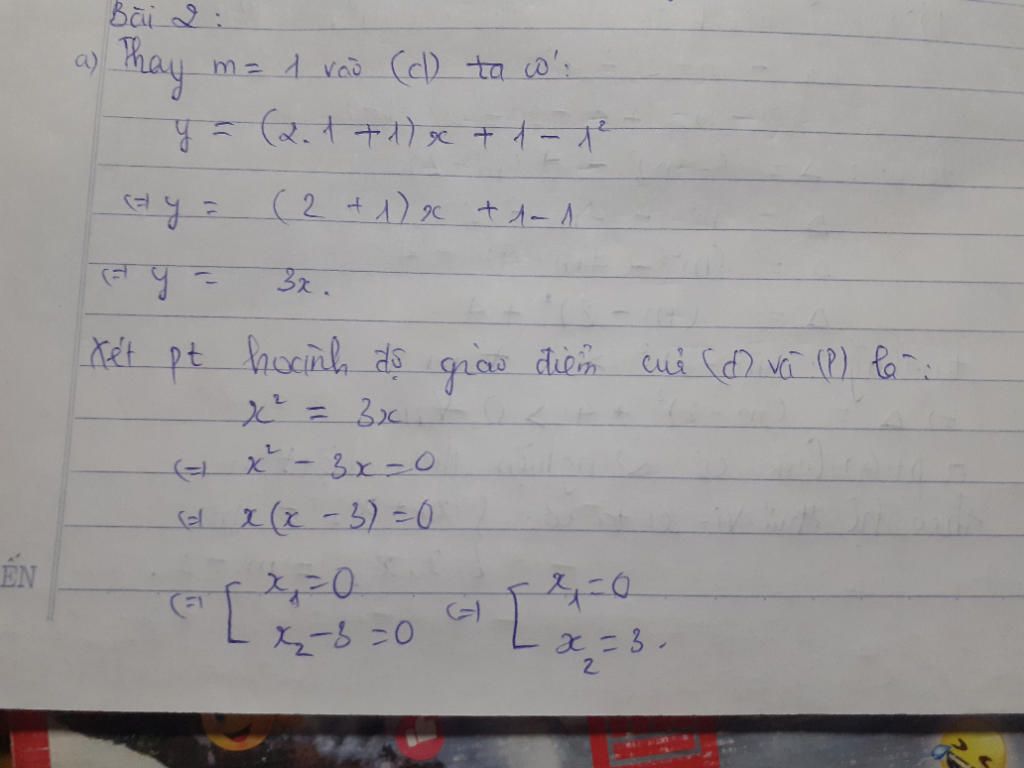 Bài 2:
a) Thay m = 1 vào (d) ta có:
y = (2.1 + 1)x + 1 - 1²
(=) y = (2 + 1)x + 1 - 1
(=) y = 3x.
Xét pt hoành độ giao điểm của (d) và (P) là:
x² = 3x
(=) x² - 3x = 0
(=) x(x - 3) = 0
(=) [ x₁ = 0 (=) [ x₁ = 0
x₂ - 3 = 0 x₂ = 3.
ẾN